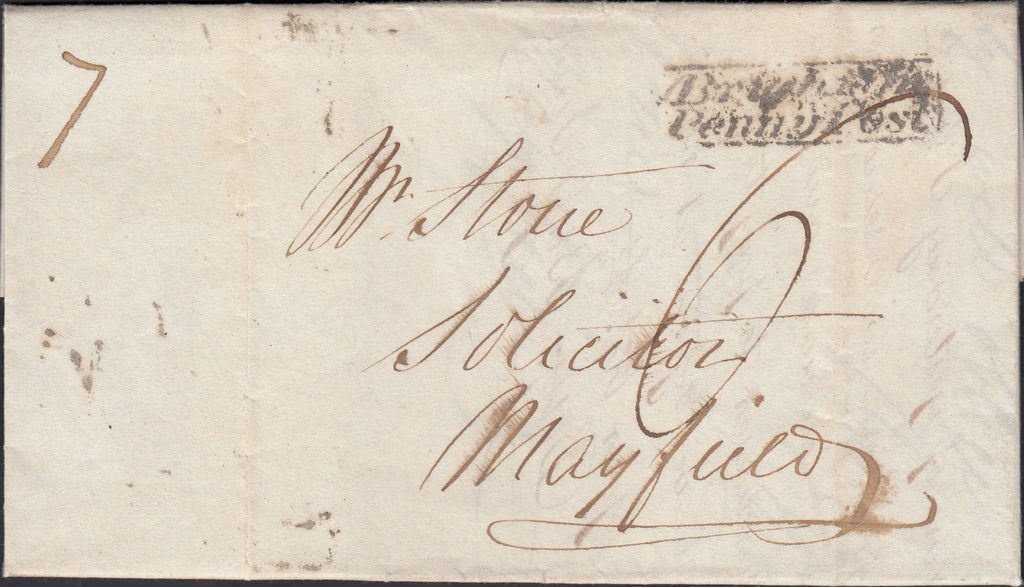 7
Brighton
Penny Post
6
Mr. Stone
Solicitor
Mayfield